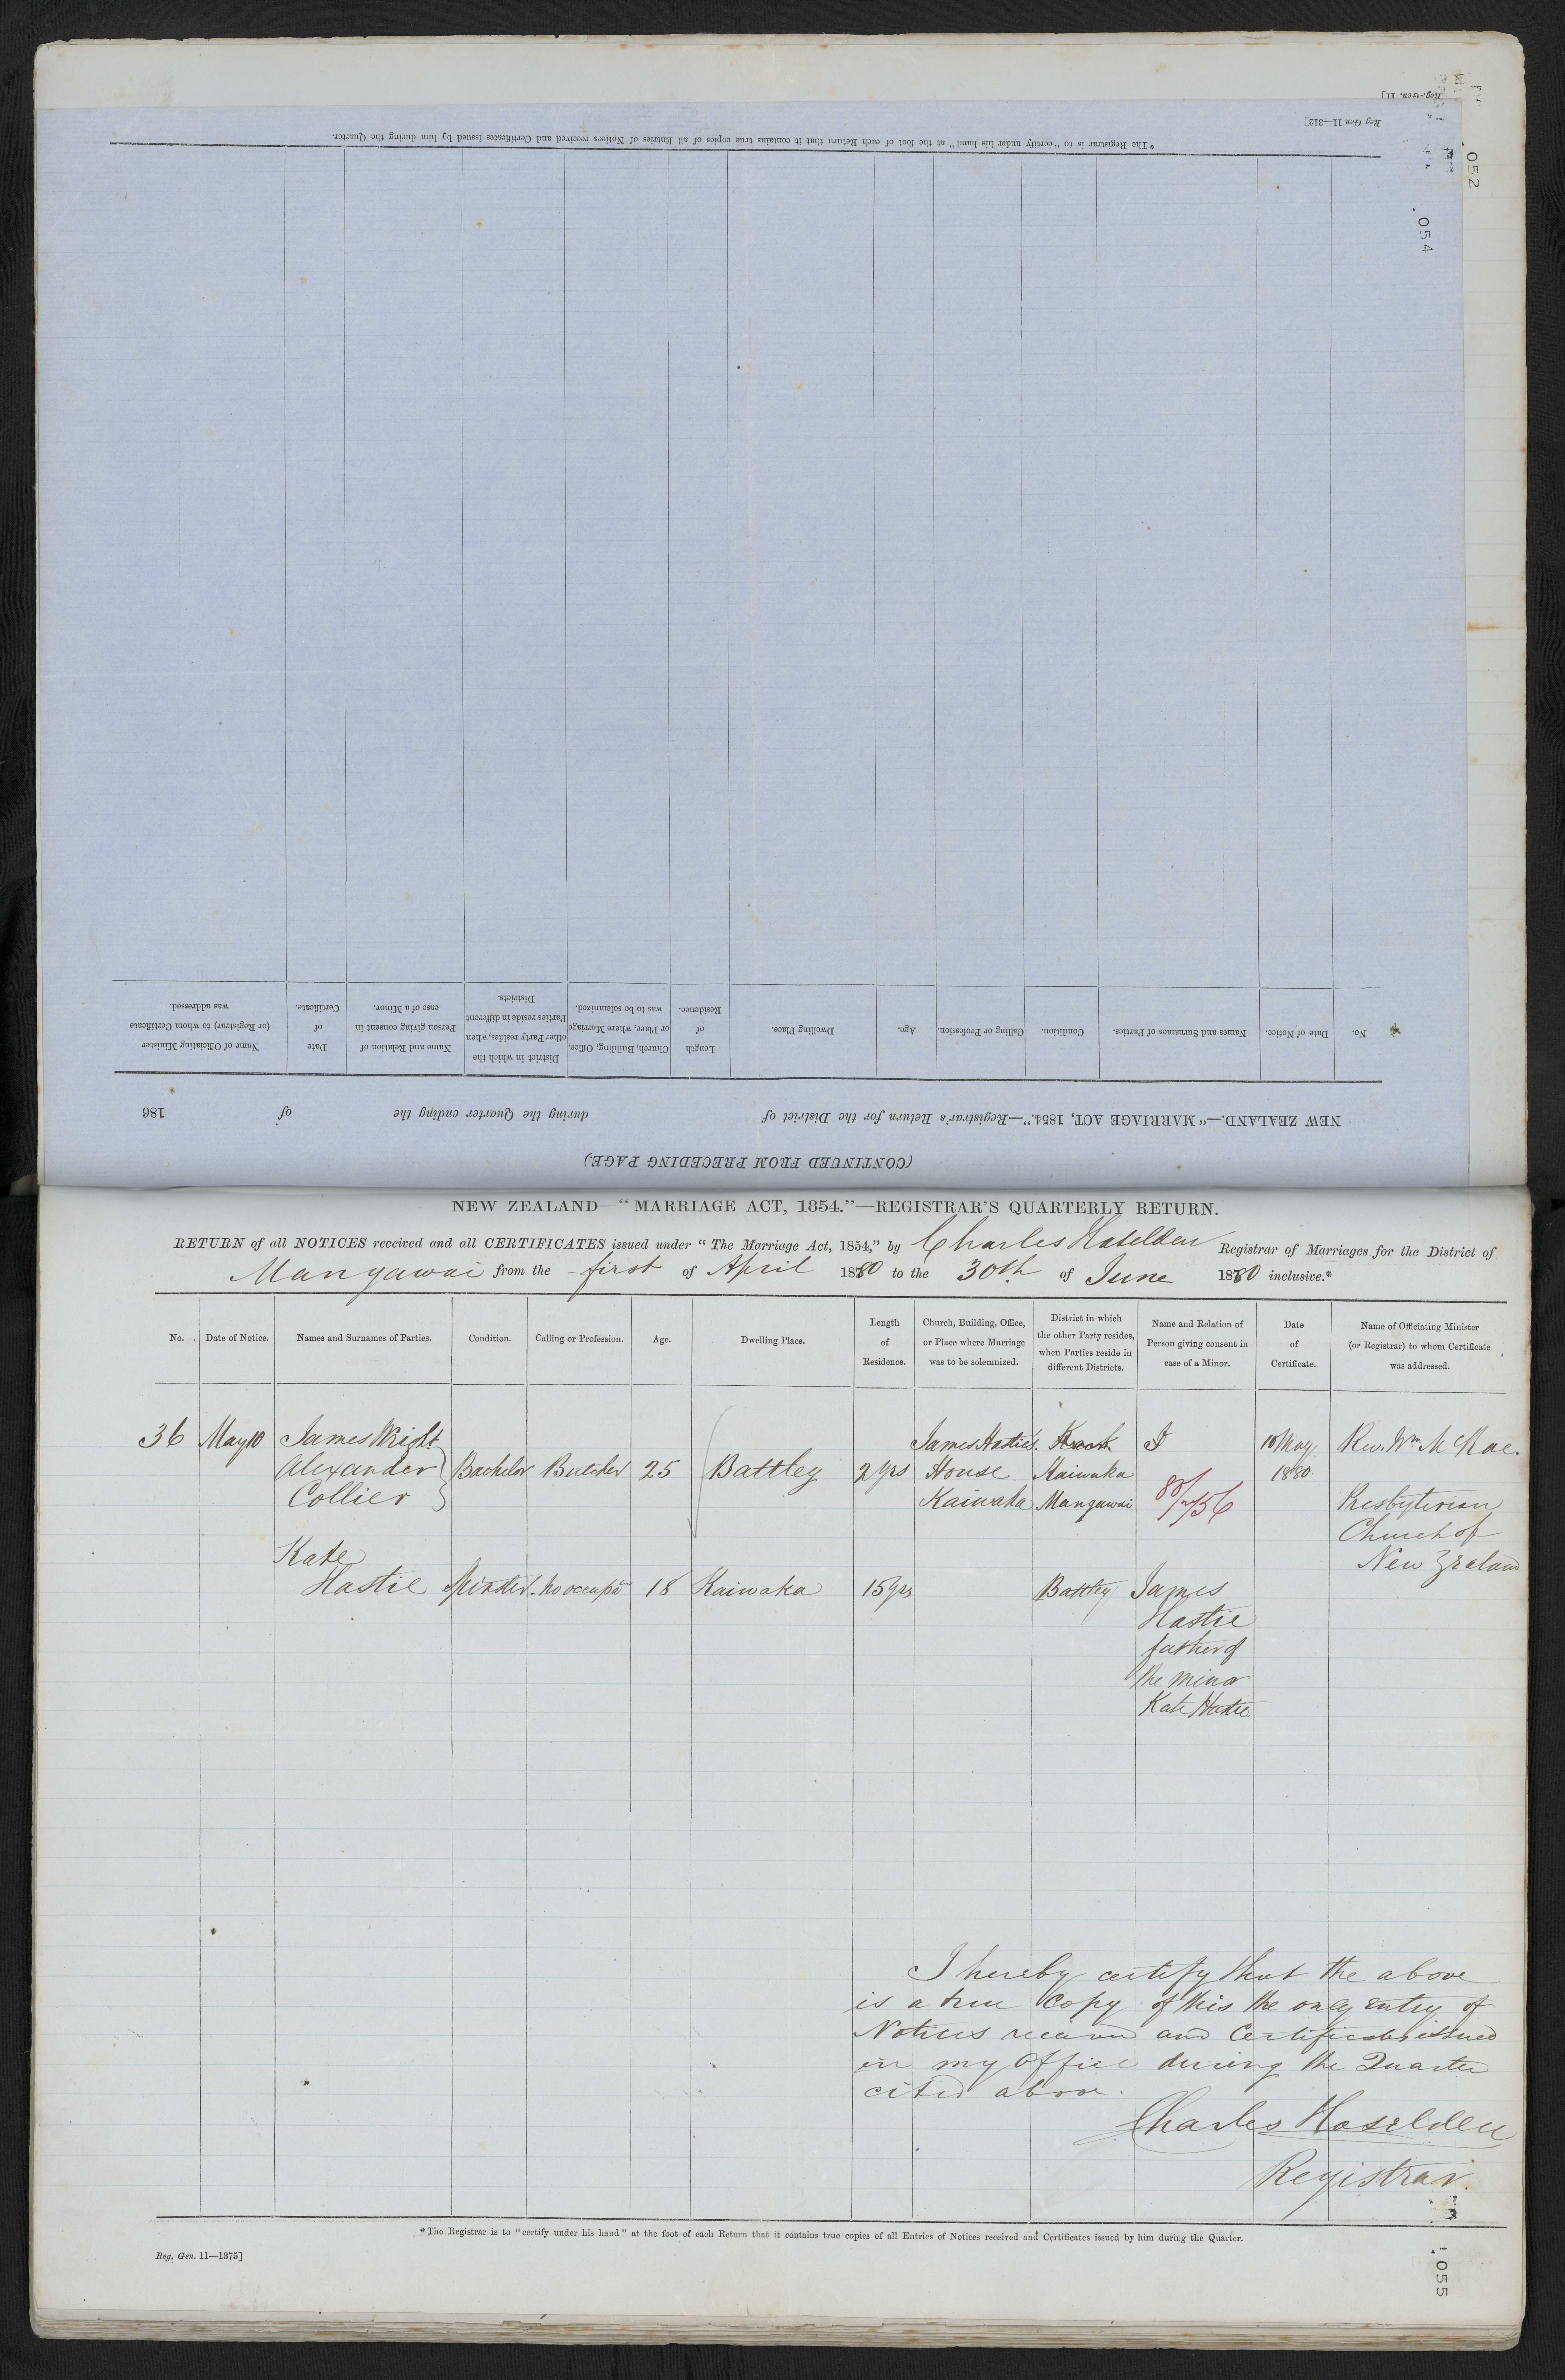 Reg.-Gen. 11]
Reg Gen 11—312]
052
054
* The Registrar is to "certify under his hand" at the foot of each Return that it contains true copies of all Entries of Notices received and Certificates issued by him during the Quarter.
(CONTINUED FROM PRECEDING PAGE)
NEW ZEALAND.—"MARRIAGE ACT, 1854."—Registrar's Return for the District of during the Quarter ending the of 186
No.
Date of Notice.
Names and Surnames of Parties.
Condition.
Calling or Profession.
Age.
Dwelling Place.
Length
of
Residence.
Church, Building, Office,
or Place, where Marriage
was to be solemnized.
District in which the
other Party resides, when
Parties reside in different
Districts.
Name and Relation of
Person giving consent in
case of a Minor.
Date
of
Certificate.
Name of Officiating Minister
(or Registrar) to whom Certificate
was addressed.
NEW ZEALAND—"MARRIAGE ACT, 1854."—REGISTRAR'S QUARTERLY RETURN.
RETURN of all NOTICES received and all CERTIFICATES issued under "The Marriage Act, 1854," by Charles Haselden Registrar of Marriages for the District of
Mangawai from the first of April 1880 to the 30th of June 1880 inclusive.*
No.
Date of Notice.
Names and Surnames of Parties.
Condition.
Calling or Profession.
Age.
Dwelling Place.
Length
of
Residence.
Church, Building, Office,
or Place where Marriage
was to be solemnized.
District in which
the other Party resides,
when Parties reside in
different Districts.
Name and Relation of
Person giving consent in
case of a Minor.
Date
of
Certificate.
Name of Officiating Minister
(or Registrar) to whom Certificate
was addressed.
36
May 10
James Wright
Alexander
Collier
Bachelor
Butcher
25
Battley
2 yrs
James Hastie's
House
Kaiwaka
Kaiwaka
Mangawai
80/2156
10 May
1880
Rev. Wm McRae.
Presbyterian
Church of
New Zealand
Kate
Hastie
Spinster
no occupan
18
Kaiwaka
15 yrs
Battley
James
Hastie
father of
the minor
Kate Hastie
I hereby certify that the above
is a true copy of this the only entry of
Notices received and Certificates issued
in my Office during the Quarter
cited above.
Charles Haselden
Registrar.
* The Registrar is to "certify under his hand" at the foot of each Return that it contains true copies of all Entries of Notices received and Certificates issued by him during the Quarter.
Reg. Gen. 11—1375]
055